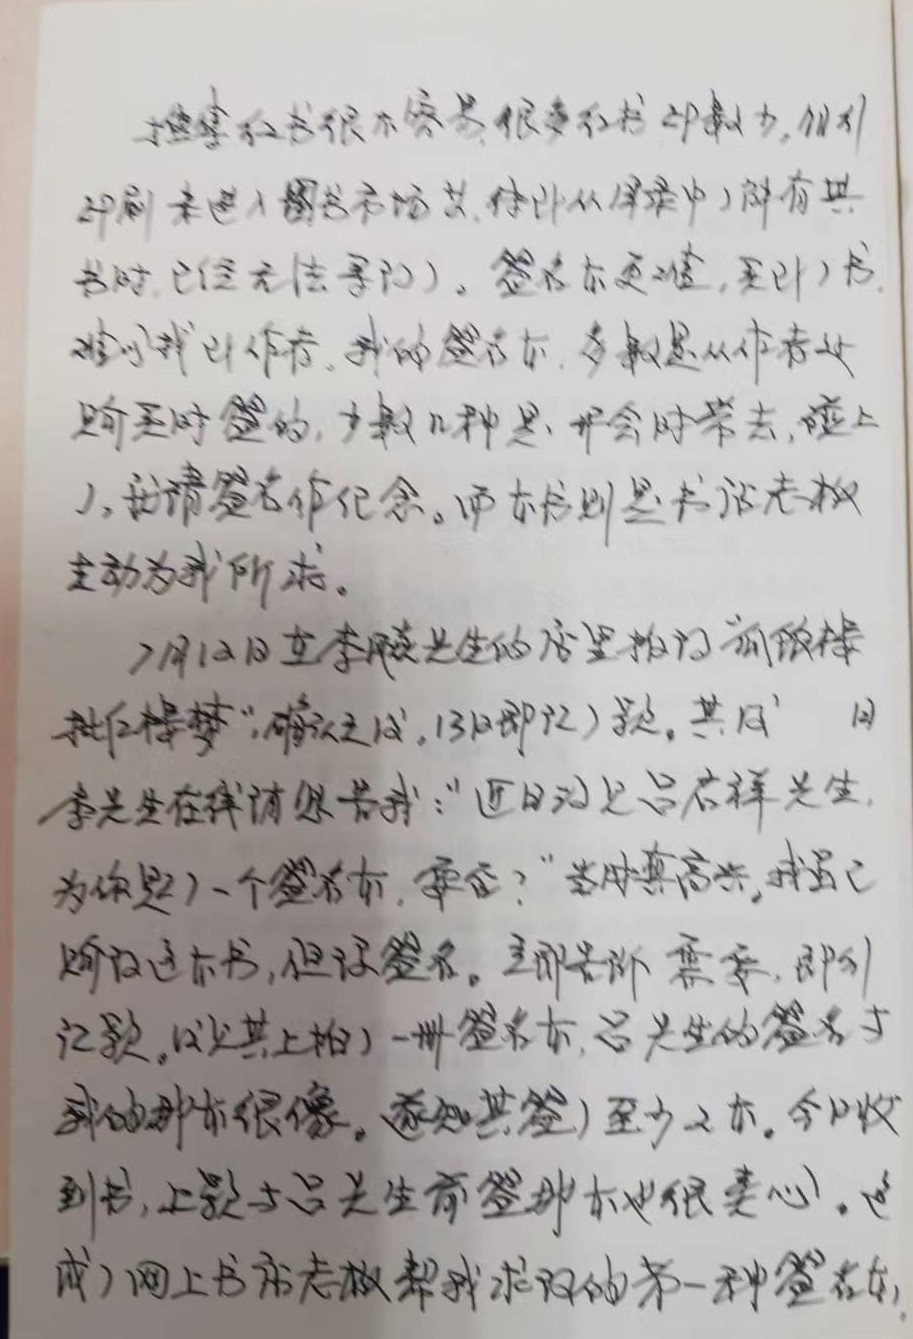 搜集红书很不容易,很多红书印数少,
印刷未进入图书市场若,待到从目录中了解有其
书时,已经无法寻访了。签名本更难,买到了书,
难以找到作者,我的签名本,多数是从作者处
购买时签的,少数几种是开会时带去,碰上
了,敬请签名作纪念。而本书则是书店老板
主动为我所求。
7月12日在李晓先生的店里拍得“瓜饭楼
批红楼梦”,确认之后,13日即汇了款。其后 日
李先生在线讯息告我:“近日沟见吕启祥先生,
为你题了一个签名本,要否?”当时真高兴,我虽已
购得这本书,但没签名。立即告诉需要,即刻
汇款。后见其上拍了一册签名本,吕先生的签名与
我的那本很像。遂知其签了至少2本。今日收
到书,上款与吕先生前签那本也很类似。这
成了网上书店老板帮我求得的第一种签名本,